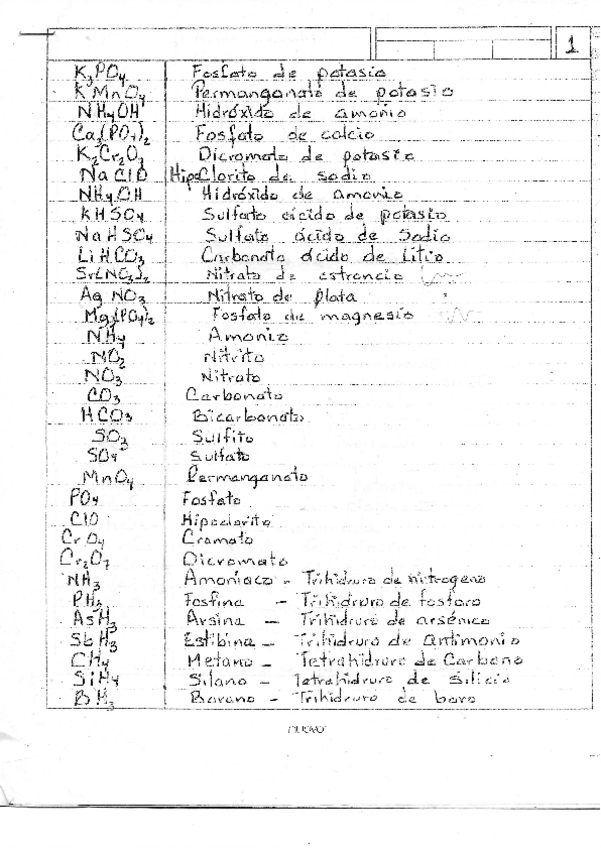 1
K3PO4 Fosfato de potasio
KMnO4 Permanganato de potasio
NH4OH Hidróxido de amonio
Ca3(PO4)2 Fosfato de calcio
K2Cr2O7 Dicromato de potasio
NaClO HipoClorito de sodio
NH4OH Hidróxido de amonio
KHSO4 Sulfato ácido de potasio
NaHSO4 Sulfato ácido de Sodio
LiHCO3 Carbonato ácido de Litio
Sr(NO3)2 Nitrato de estroncio
AgNO3 Nitrato de plata
Mg3(PO4)2 Fosfato de magnesio
NH4 Amonio
NO2 Nitrito
NO3 Nitrato
CO3 Carbonato
HCO3 Bicarbonato
SO3 Sulfito
SO4 Sulfato
MnO4 Permanganato
PO4 Fosfato
ClO Hipoclorito
CrO4 Cromato
Cr2O7 Dicromato
NH3 Amoníaco - Trihidruro de nitrogeno
PH3 Fosfina - Trihidruro de fosforo
AsH3 Arsina - Trihidruro de arsénico
SbH3 Estibina - Trihidruro de Antimonio
CH4 Metano - Tetrahidruro de Carbono
SiH4 Silano - Tetrahidruro de Silicio
BH3 Borano - Trihidruro de boro
nuevo